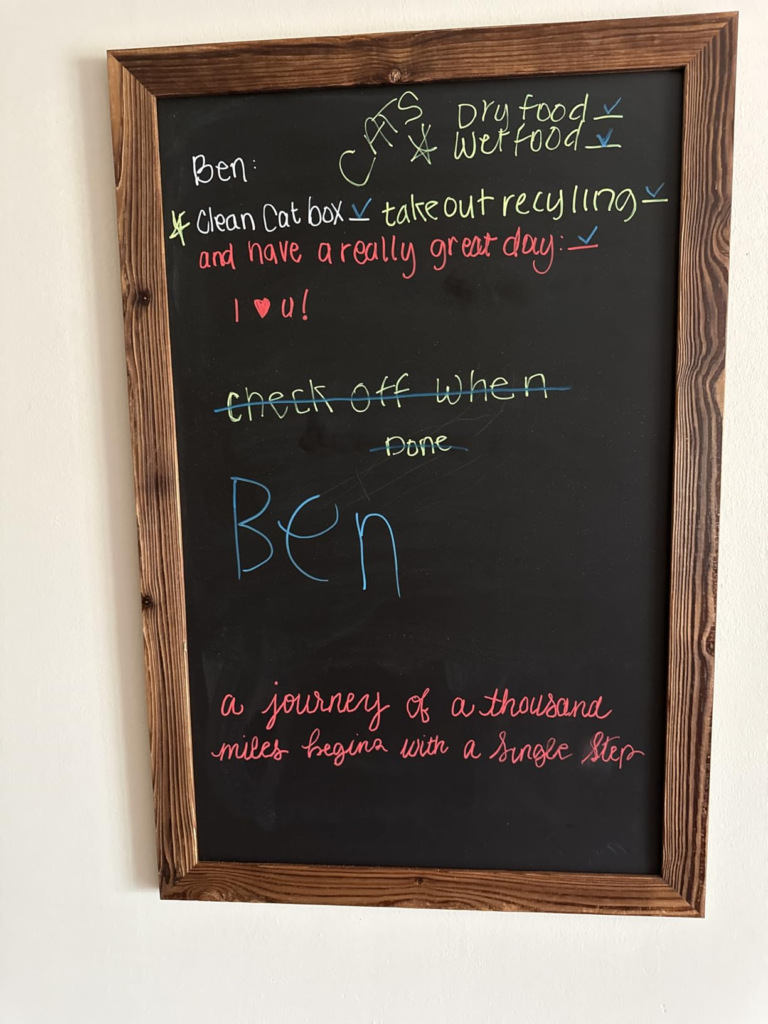 CATS
* Dry food ✓
Wet food ✓
Ben:
* Clean Cat box ✓ take out recyling ✓
and have a really great day: ✓
I ♥ u!
check off when
Done
Ben
a journey of a thousand
miles begins with a single step